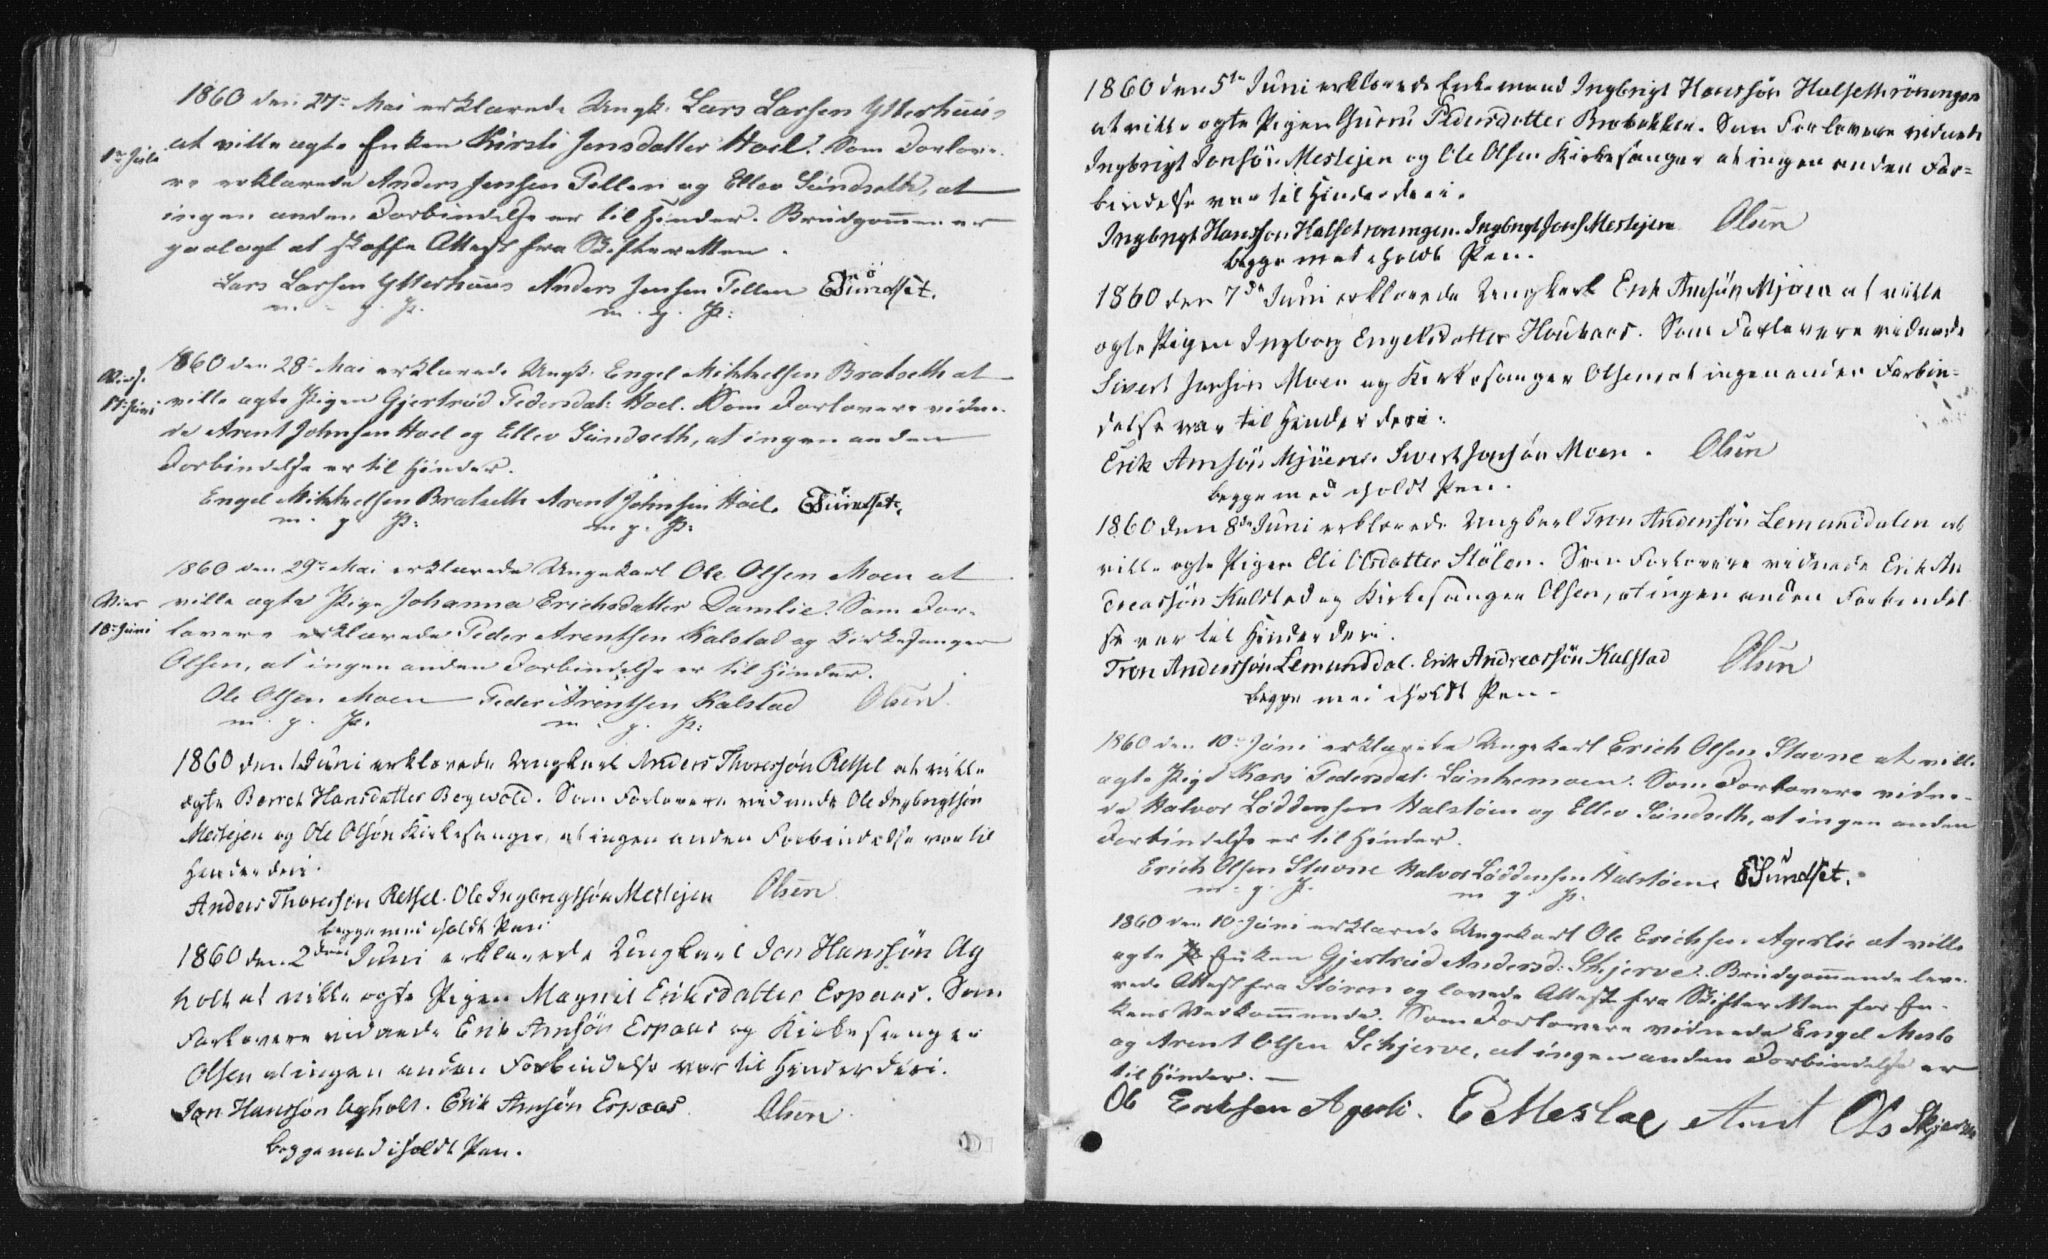 1860 den 27de Mai erklærede Ungk: Lars Larsen Ytterhuus
1ste Juli
at ville ægte Enken Kirsti Jensdatter Hoel. Som Forlove-
re erklærede Anders Jensen Tellen og Ellev Sundseth, at
ingen anden Forbindelse er til Hinder. Brudgommen er
paalagt at skaffe Attest fra Skifteretten.
Lars Larsen Ytterhuus Anders Jensen Tellen ESundset.
m. g. P. m. g. P:
1860 den 28de Mai erklærede Ungk: Engel Mikkelsen Bratseth at
Viede
17de Juni
ville ægte Pigen Gjertrud Pedersdat: Hoel. Som Forlovere vidne-
de Arent Johnsen Hoel og Ellev Sundseth, at ingen anden
Forbindelse er til Hinder.
Engel Mikkelsen Bratseth Arent Johnsen Hoel. ESundset.
m. g. P: m. g. P:
1860 den 29de Mai erklærede Ungekarl Ole Olsen Moen at
Viet
18de Juni
ville ægte Pige Johanna Erichsdatter Damlie. Som For-
lovere erklærede Peder Arentsen Kalstad og Kirkesanger
Olsen, at ingen anden Forbindelse er til Hinder.
Ole Olsen Moen Peder Arentsen Kalstad Olsen
m. g. P. m. g. P:
1860 den 1 Juni erklærede Ungkarl Anders Thoresøn Retsel at ville
ægte Berret Hansdatter Begvold. Som Forlovere vidnede Ole Ingbrigtsøn
Meslejen og Ole Olsøn Kirkesanger, at ingen anden Forbindelse var til
Hinder deri.
Anders Thoresøn Retsel. Ole Ingbrigtsøn Meslejen Olsen
begge med iholdt Pen
1860 den 2den Juni erklærede Ungkarl Jon Hanssøn Ag
holt at ville ægte Pigen Magnil Eriksdatter Espaas. Som
Forlovere vidnede Erik Arnsøn Espaas og Kirkesanger
Olsen at ingen anden Forbindelse var til Hinder deri.
Jon Hanssøn Agholt. Erik Arnsøn Espaas Olsen
begge med iholdt Pen.
1860 den 5te Juni erklærede Enkemand Ingbrigt Hanssøn Halsethrøningen
at ville ægte Pigen Guru Pedersdatter Brobakken. Som Forlovere vidnede
Ingbrigt Jonsøn Meslejen og Ole Olsen Kirkesanger at ingen anden For=
bindelse var til Hinder deri.
Ingbrigt Hanssøn Halsetrøningen. Ingbrigt Jons Meslejen Olsen
begge med iholdt Pen.
1860 den 7de Juni erklærede Ungkarl Erik Arnsøn Mjøen at ville
ægte Pigen Ingborg Engelsdatter Houkaas. Som Forlovere vidnede
Sivert Jonsøn Moen og Kirkesanger Olsen at ingen anden Forbin-
delse var til Hinder deri.
Erik Arnsøn Mjøen. Sivert Jonsøn Moen. Olsen
begge med iholdt Pen.
1860 den 8de Juni erklærede Ungkarl Tron Anderssøn Lemunddalen at
ville ægte Pigen Eli Olsdatter Stølen. Som Forlovere vidnede Erik An
dreassøn Kalstad og Kirkesanger Olsen, at ingen anden Forbindel
se var til Hinder deri.
Tron Anderssøn Lemunddal. Erik Andreassøn Kalstad Olsen
begge med iholdt Pen.
1860 den 10de Juni erklærede Ungekarl Erich Olsen Stavne at ville
ægte Pige Kari Pedersdat. Hvor. Som Forlovere vidne-
de Halvor Løddensen Halstøen og Ellev Sundseth, at ingen anden
Forbindelse er til Hinder.
Erich Olsen Stavne Halvor Løddensen Halstøen. ESundset.
m. g. P. m. g. P.
1860 den 10de Juni erklærede Ungekarl Ole Erichsen Agerlie at ville
ægte Enken Gjertrud Andersd: Skjerve. Brudgommen leve-
rede Attest fra Støren og lovede Attest fra Skifteretten for En-
kens Vedkommende. Som Forlovere vidnede Engel Meslo
og Arent Olsen Schjerve, at ingen anden Forbindelse er
til Hinder. —
Ole Eriksen Agerli. E Mesloe Arnt Ols Skjerve